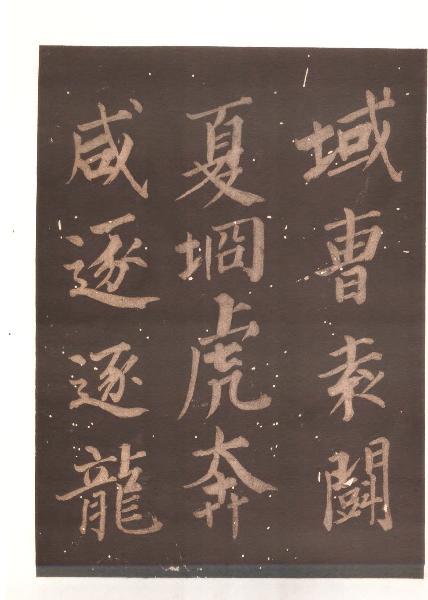 域曹袁闘
夏堈虎奔
咸逐逐龍